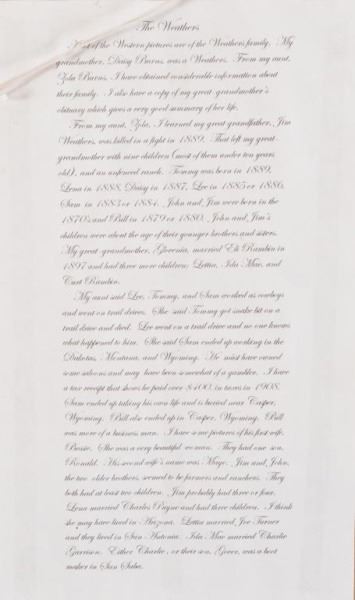 The Weathers
Most of the Western pictures are of the Weathers family. My
grandmother, Daisy Burns, was a Weathers. From my aunt,
Zola Burns, I have obtained considerable information about
their family. I also have a copy of my great-grandmother's
obituary which gives a very good summary of her life.
From my aunt, Zola, I learned my great grandfather, Jim
Weathers, was killed in a fight in 1889. That left my great-
grandmother with nine children (most of them under ten years
old), and an unfenced ranch. Tommy was born in 1889,
Lena in 1888, Daisy in 1887, Lee in 1885 or 1886,
Sam in 1883 or 1884. John and Jim were born in the
1870's and Bill in 1879 or 1880. John and Jim's
children were about the age of their younger brothers and sisters.
My great-grandmother, married Eli Rambin in
1897 and had three more children; Lettia, Ida Mae, and
Curt Rambin.
My aunt said Lee, Tommy, and Sam worked as cowboys
and went on trail drives. She said Tommy got snake bit on a
trail drive and died. Lee went on a trail drive and no one knows
what happened to him. She said Sam ended up working in the
Dakotas, Montana, and Wyoming. He must have owned
some saloons and may have been somewhat of a gambler. I have
a tax receipt that shows he paid over $400 in taxes in 1908.
Sam ended up taking his own life and is buried near Casper,
Wyoming. Bill also ended up in Casper, Wyoming. Bill
was more of a business man. I have some pictures of his first wife,
Bessie. She was a very beautiful woman. They had one son,
Ronald. His second wife's name was Maye. Jim and John,
the two older brothers, seemed to be farmers and ranchers. They
both had at least two children. Jim probably had three or four.
Lena married Charles Payne and had three children. I think
she may have lived in Arizona. Lettia married Joe Turner
and they lived in San Antonio. Ida Mae married Charlie
Garrison. Either Charlie, or their son, Gover, was a boot
maker in San Saba.